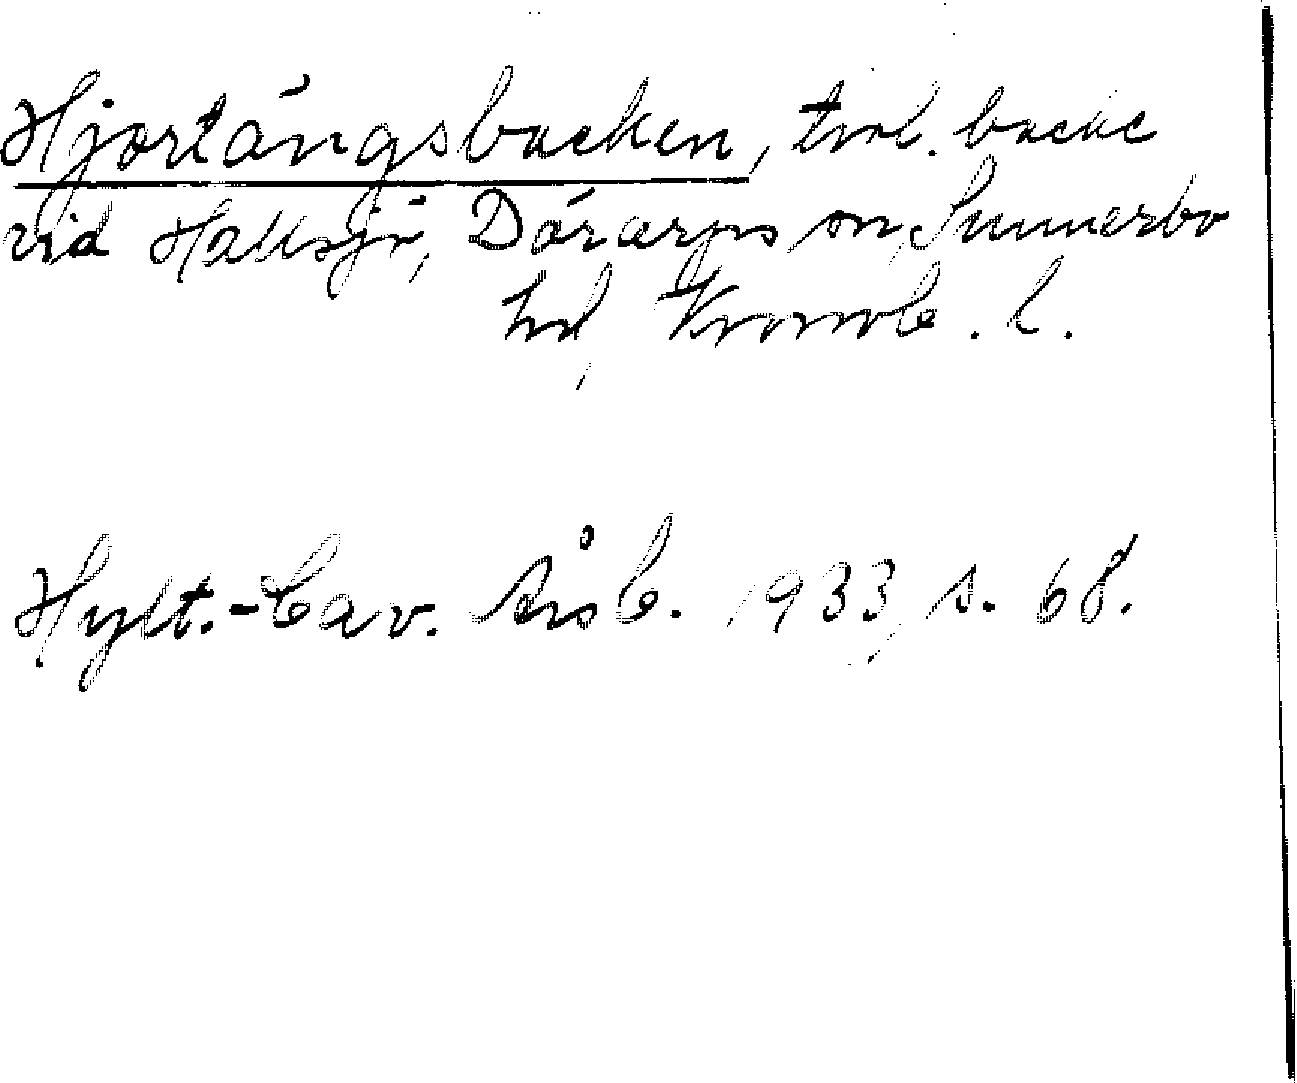 Hjortängsbacken, trol. backe
vid Hallsjö, Dörarps sn, Sunnerbo
hd, Kronob. l.
Hylt.-Cav. Årsb. 1933, s. 68.